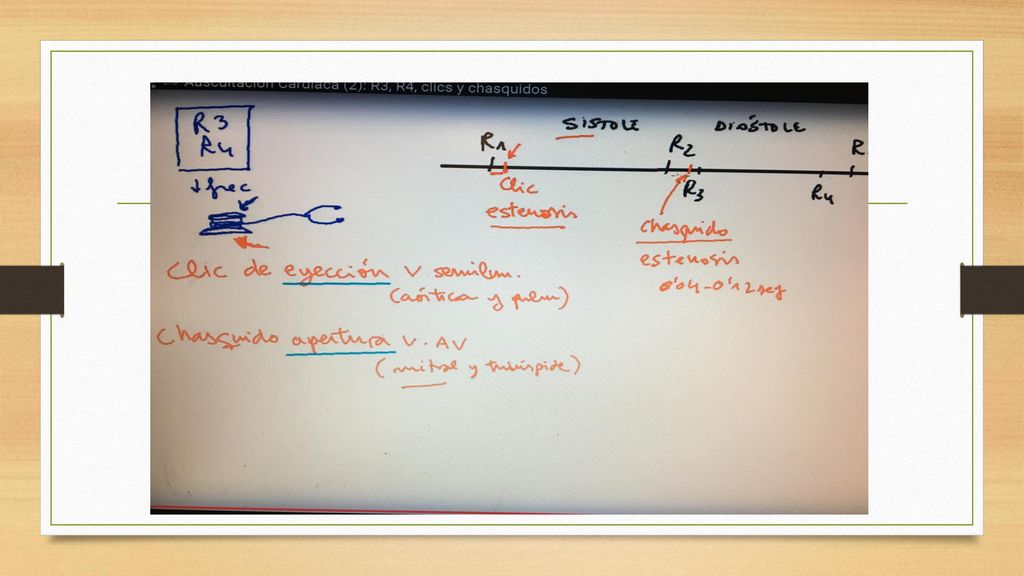 Auscultación Cardíaca (2): R3, R4, clics y chasquidos
R3
R4
↓ frec
SÍSTOLE
DIÁSTOLE
R1
R2
R
Clic
estenosis
R3
R4
chasquido
estenosis
0'04-0'12 seg
Clic de eyección V. semilun.
(aórtica y pulm)
Chasquido apertura V. AV
(mitral y tricúspide)